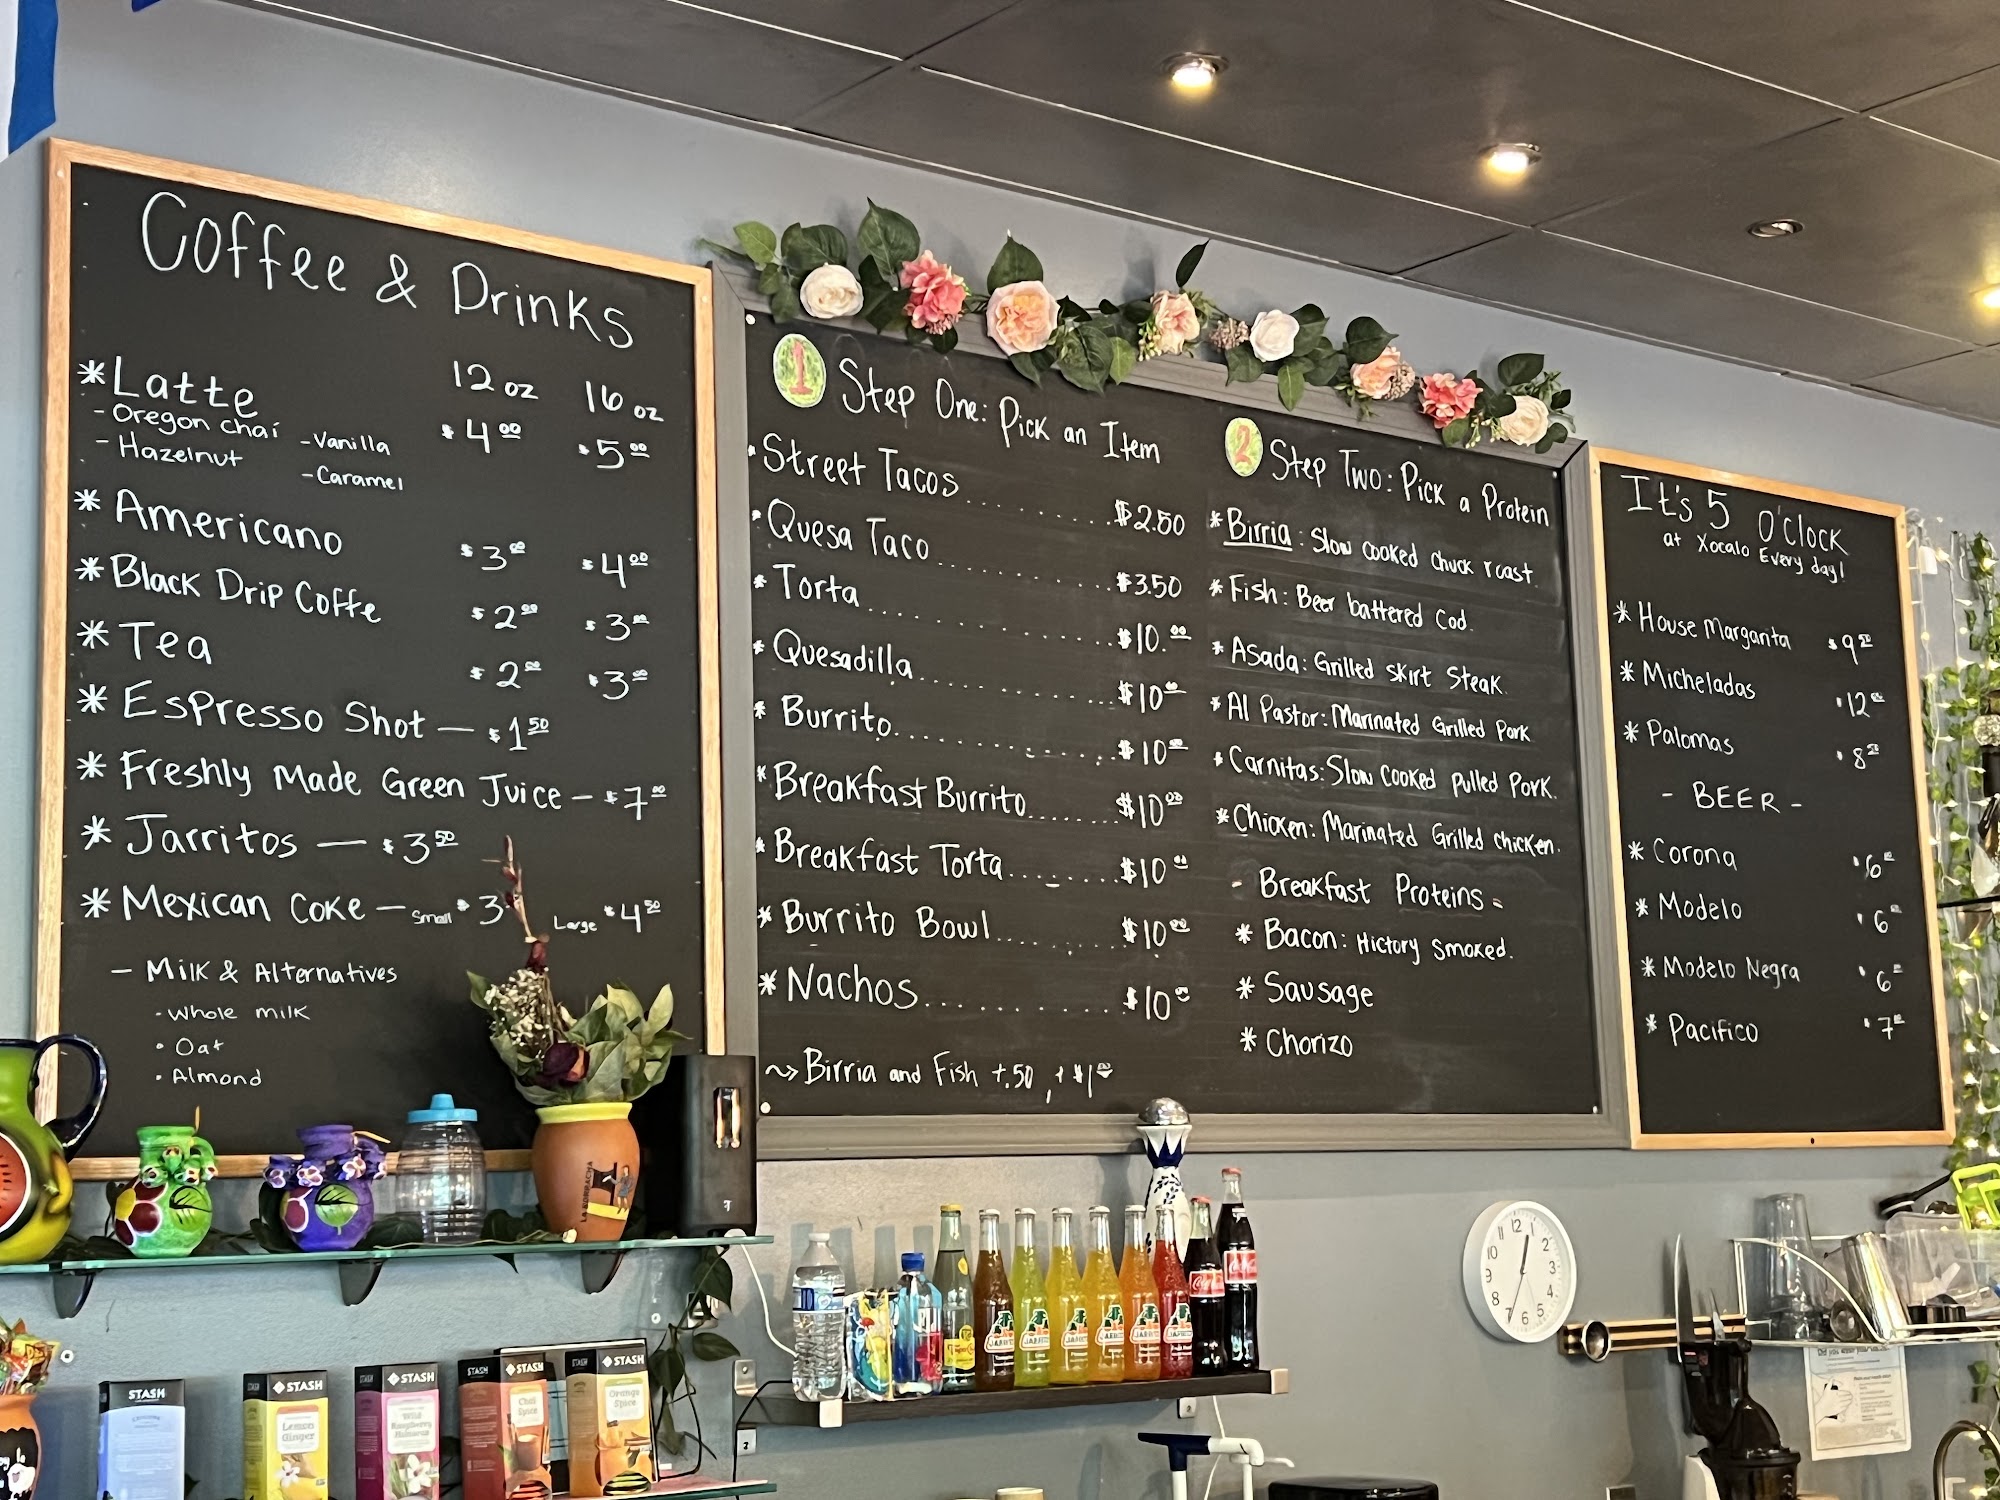 Coffee & Drinks
* Latte 12 oz 16 oz
$4.00 $5.00
- Oregon chai - Vanilla
- Hazelnut - Caramel
* Americano $3.00 $4.00
* Black Drip Coffe $2.00 $3.00
* Tea $2.00 $3.00
* Espresso Shot — $1.50
* Freshly Made Green Juice — $7.00
* Jarritos — $3.50
* Mexican Coke — Small $3 Large $4.50
— Milk & Alternatives
- Whole milk
• Oat
• Almond
1 Step One: Pick an Item
* Street Tacos $2.50
* Quesa Taco $3.50
* Torta $10.00
* Quesadilla $10.00
* Burrito $10.00
* Breakfast Burrito $10.00
* Breakfast Torta $10.00
* Burrito Bowl $10.00
* Nachos $10.00
~> Birria and Fish +.50, + $1.00
2 Step Two: Pick a Protein
* Birria: Slow cooked chuck roast.
* Fish: Beer battered Cod.
* Asada: Grilled Skirt Steak.
* Al Pastor: Marinated Grilled Pork
* Carnitas: Slow cooked pulled Pork.
* Chicken: Marinated Grilled chicken.
- Breakfast Proteins -
* Bacon: Hictory Smoked.
* Sausage
* Chorizo
It's 5 O'Clock
at Xocalo Every day!
* House Margarita $9
* Micheladas $12
* Palomas $8
- BEER -
* Corona $6
* Modelo $6
* Modelo Negra $6
* Pacifico $7
LA BORRACHA
STASH
STASH
Lemon
Ginger
STASH
Wild
Raspberry
Hibiscus
STASH
Chai
Spice
STASH
Orange
Spice
JARRITOS
Coca-Cola
Coca-Cola
12
2
3
4
5
6
7
8
9
10